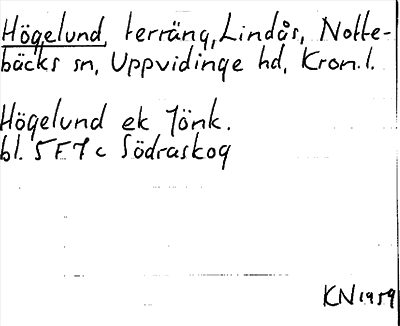 Högelund, terräng, Lindås, Notte-
bäcks sn, Uppvidinge hd, Kron. l.
Högelund ek Jönk.
bl. 5F7c Södraskog
KN 1959